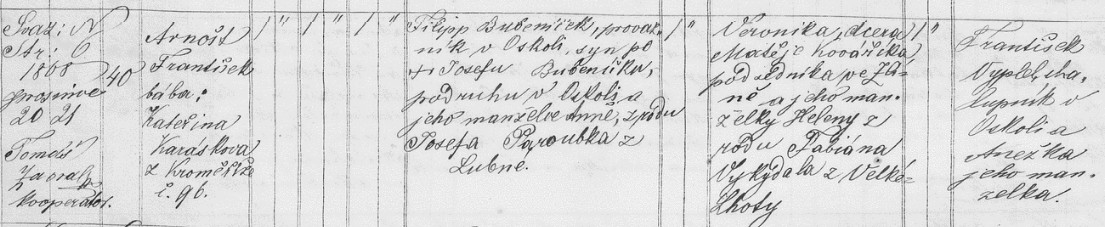 Svaz: N
Str: 6
1868
prosince
20 21
Tomáš
kooperátor.
40
Arnošt
František
bába:
Kateřina
Karaskova
z Kroměříže
č. 96.
Filipp Bubeníček, provaz-
ník v Oskoli, syn po
+ Josefu Bubeníčka,
podruhu v Oskoli a
jeho manželce Anně, z rodu
Josefa Paroubka z
Lubné.
Veronika, dcera
Matěje Kovaříka
podsedníka ve
a jeho man-
želky Heleny z
rodu Fabiána
Vykydala z Velké-
Lhoty
František
Vyplel, cha-
lupník v
Oskoli a
Anežka
jeho man-
želka.